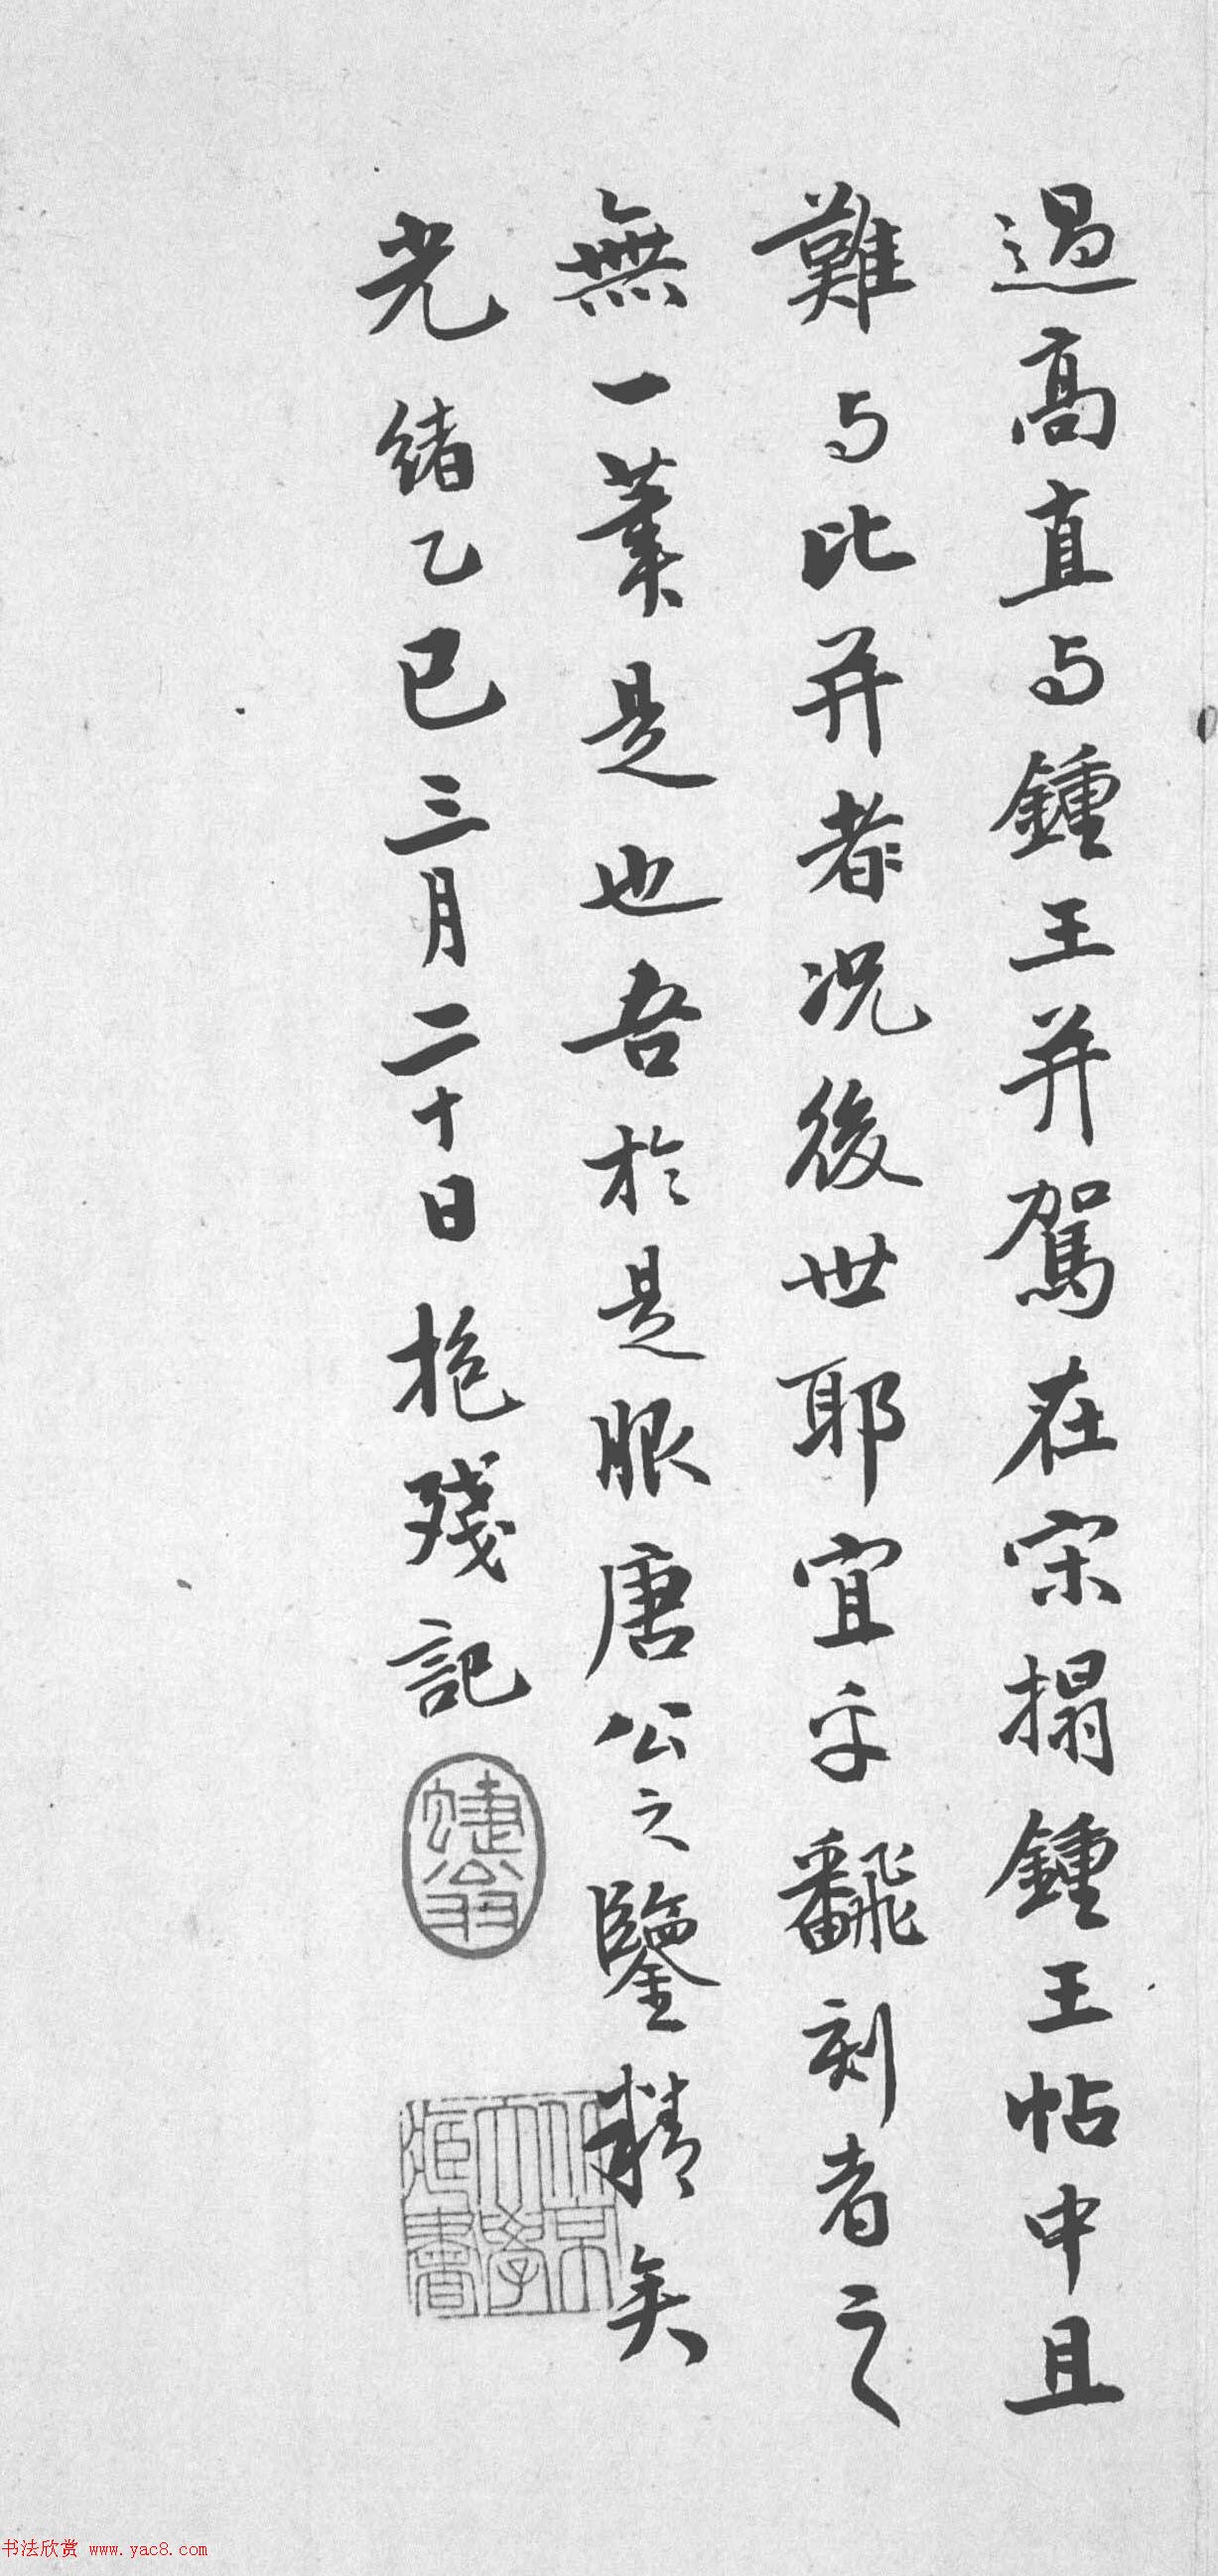 過高直与鍾王并駕在宋搨鍾王帖中且
難与比并者况後世耶宜乎飜刻者之
無一業是也吾於是服唐公之鑒精矣
光緒乙巳三月二十日抱殘記
蜨翁
北京大學藏書
书法欣赏 www.yac8.com